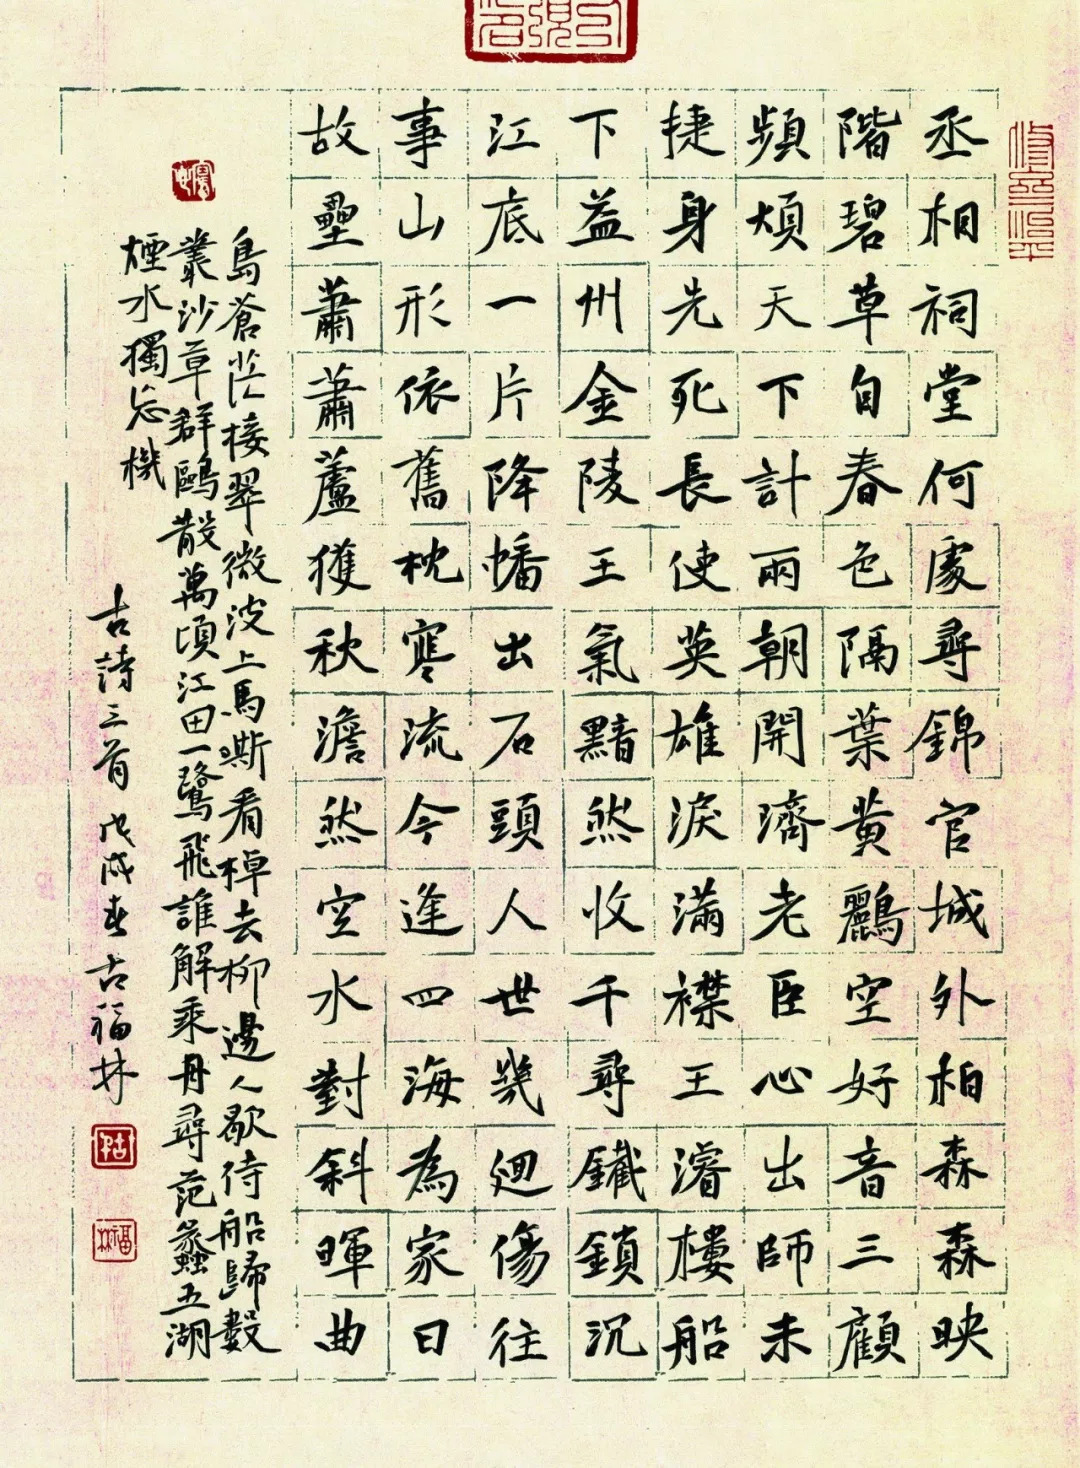 丞相祠堂何處尋錦官城外柏森森映
階碧草自春色隔葉黃鸝空好音三顧
頻煩天下計兩朝開濟老臣心出師未
捷身先死長使英雄淚滿襟王濬樓船
下益州金陵王氣黯然收千尋鐵鎖沉
江底一片降幡出石頭人世幾迴傷往
事山形依舊枕寒流今逢四海為家日
故壘蕭蕭蘆獲秋澹然空水對斜暉曲
島蒼茫接翠微波上馬嘶看棹去柳邊人歇待船歸數
叢沙草群鷗散萬頃江田一鷺飛誰解乘舟尋范蠡五湖
煙水獨忘機
古詩三首 戊戌春 古福林